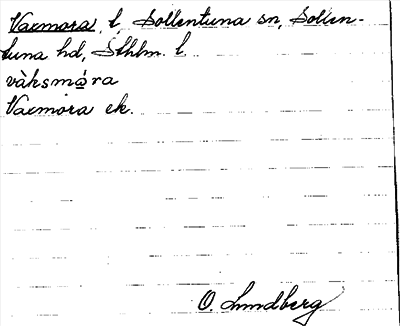 Vaxmora, l, Sollentuna sn, Sollen-
tuna hd, Sthlm. l
vàksmó̱ra
Vaxmora ek.
O Lundberg